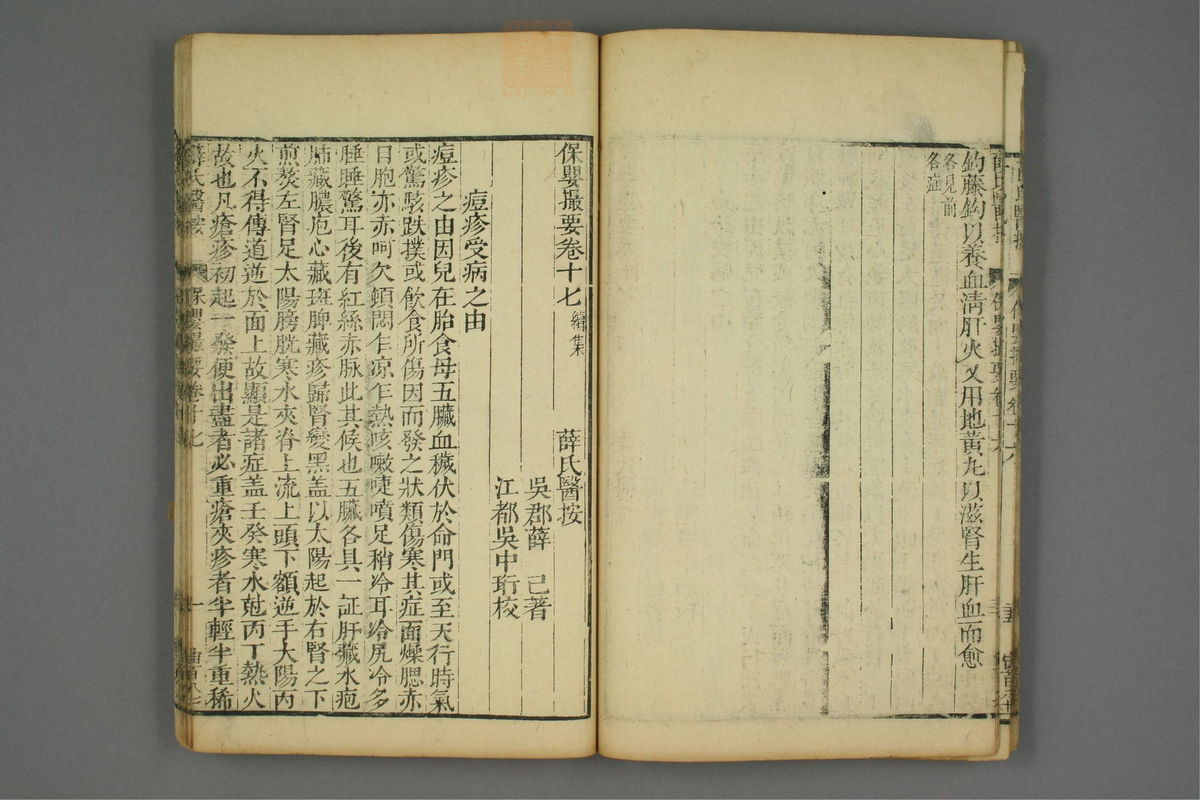 鈎藤鈎以養血淸肝火又用地黃丸以滋腎生肝血而愈
各見前
各症
保嬰撮要卷十七 續集 薛氏醫按
吳郡薛 己著
江都吳中珩校
痘疹受病之由
痘疹之由因兒在胎食母五臟血穢伏於命門或至天行時氣
或驚駭跌撲或飮食所傷因而發之狀類傷寒其症面燥腮赤
目胞亦赤呵欠頓悶乍凉乍熱咳嗽嚏噴足稍冷耳冷尻冷多
睡睡驚耳後有紅絲赤脉此其候也五臟各具一証肝藏水疱
肺藏膿疱心藏斑脾藏疹歸腎變黑盖以太陽起於右腎之下
煎熬左腎足太陽膀胱寒水夾脊上流上頭下額逆手太陽丙
火不得傳道逆於面上故顯是諸症盖壬癸寒水尅丙丁熱火
故也凡瘡疹初起一發便出盡者必重瘡夾疹者半輕半重稀
薛氏醫按 保嬰撮要卷十七 一